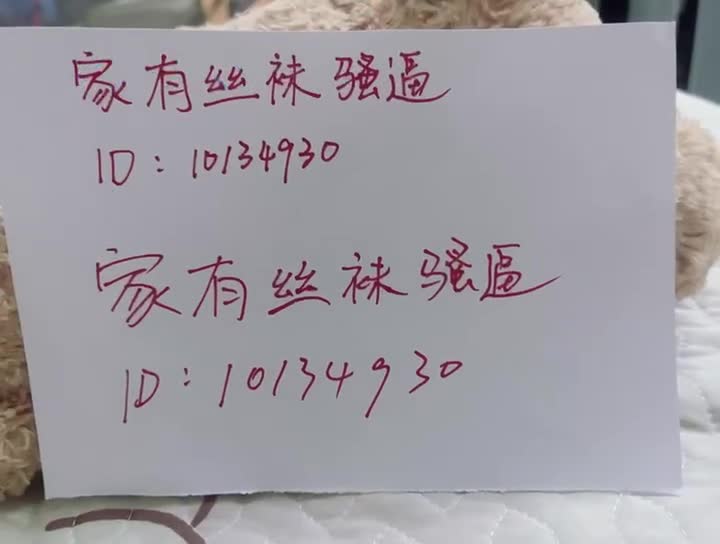 家有丝袜骚逼
ID：10134930
家有丝袜骚逼
ID：10134930